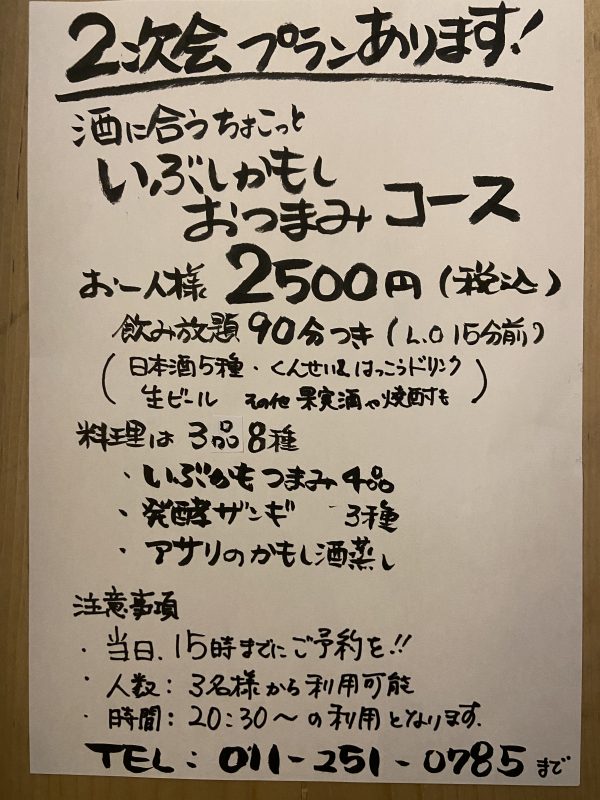 2次会プランあります!
酒に合うちょこっと
いぶしかもし
おつまみコース
お一人様 2500円(税込)
飲み放題90分つき(L.O 15分前)
(日本酒5種・くんせい&はっこうドリンク
生ビール その他 果実酒や焼酎も)
料理は 3品8種
・いぶかもつまみ4品
・発酵ザンギ 3種
・アサリのかもし酒蒸し
注意事項
・当日、15時までにご予約を!!
・人数:3名様から利用可能
・時間:20:30〜の利用となります。
TEL:011-251-0785まで